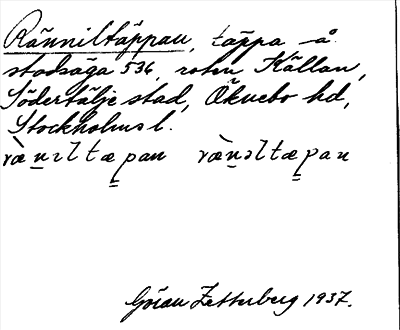 Ränniltäppan, täppa å
stadsäga 536, roten Källan,
Södertälje stad, Öknebo hd,
Stockholms l.
ræ̀n̲ıltæp̲an ræ̀n̲əltæp̲an
Göran Zetterberg 1937.